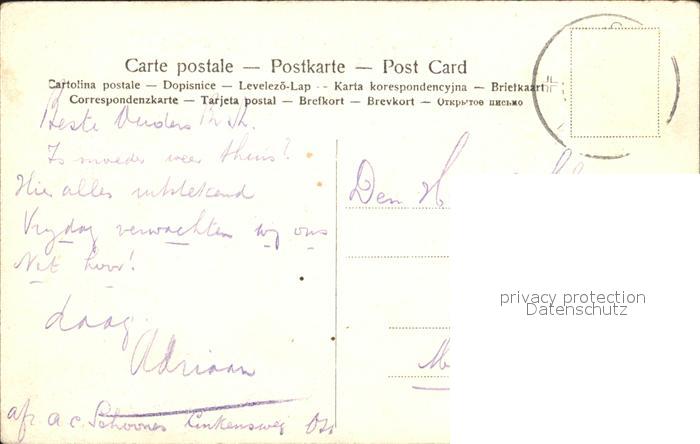 Carte postale — Postkarte — Post Card
Cartolina postale — Dopisnice — Levelező-Lap — Karta korespondencyjna — Briefkaart
Correspondenzkarte — Tarjeta postal — Brefkort — Brevkort — Открытое письмо
Beste Ouders
Is moeder weer thuis?
Hier alles uitstekend
Vrydag verwachten wy ons
Net hoor!
daag.
Adriaan
afz A C Schoones Linkensweg
Den H
M
privacy protection
Datenschutz